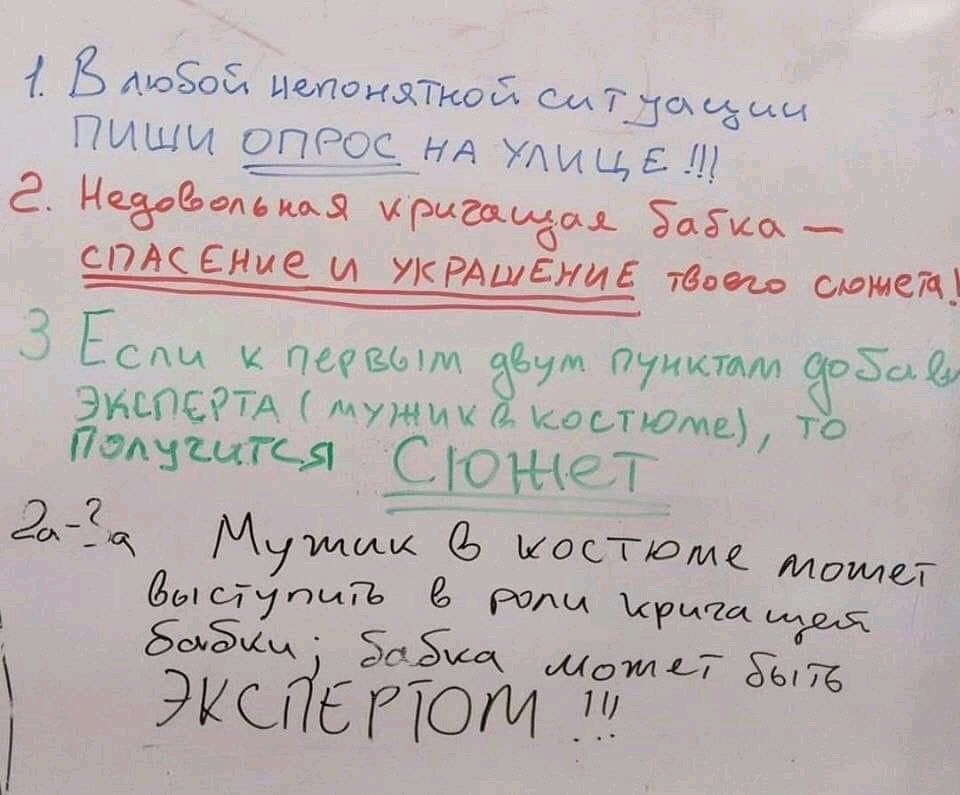 1. В любой непонятной ситуации
ПИШИ ОПРОС НА УЛИЦЕ!!!
2. Недовольная кричащая бабка —
СПАСЕНИЕ И УКРАШЕНИЕ твоего сюжета!
3 Если к первым двум пунктам добавь
ЭКСПЕРТА (мужик в костюме), то
получится СЮЖЕТ
2а-?а Мужик в костюме может
выступить в роли кричащей
бабки; бабка может быть
ЭКСПЕРТОМ!!!